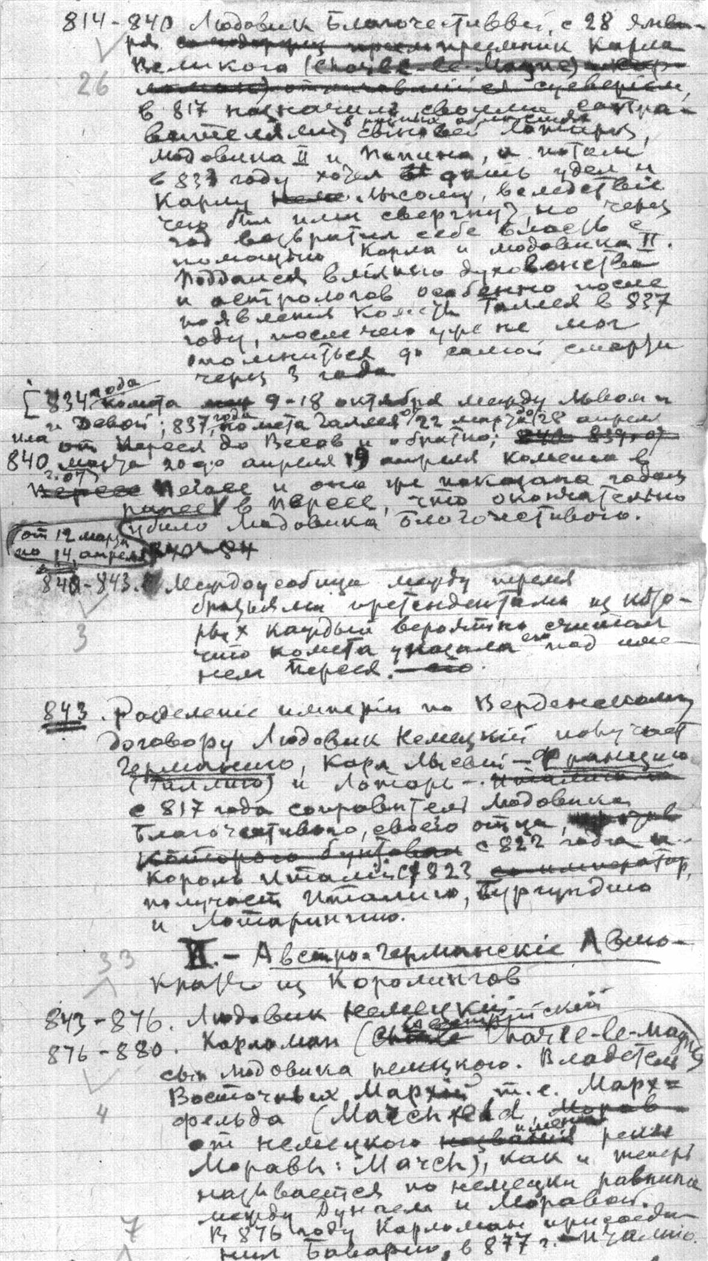 814-840 Людовик Благочестивый, с 28 янва-
ря преемник Карла
26
Великого (Charle-le-Magne)
в 817 назначил своими сопра-
вителями сыновей Лотаря,
Людовика II и Пипина, и потом
в 837 году хотел дать удел и
Карлу Лысому, вследствие
чего был ими свергнут, но через
год возвратил себе власть с
помощью Карла и Людовика II.
Поддался влиянию духовенства
и астрологов особенно после
появления Кометы Галлея в 837
году, после чего уже не мог
опомниться до самой смерти
через 3 года
[834 года комета 9-18 октября между Львом и
и Девой; 837 года комета Галлея от 22 марта до 28 апреля
от Персея до Весов и обратно;
840 марта 20 до апреля 19 апреля комета в
Персее и она уже показана годом
ранее в Персее, что окончательно
убило Людовика Благочестивого.
от 12 марта
по 14 апреля
840-843. Междоусобица между тремя
братьями претендентами из кото-
3
рых каждый вероятно считал
что комета указала под име-
нем Персея.
843. Разделение империи по Верденскому
договору Людовик Немецкий получает
Германию, Карл Лысый - Францию
(Галлию) и Лотарь -
с 817 года соправитель Людовика
Благочестивого, своего отца,
которого бунтовал с 822 года и
король Италии с 823 со император,
получает Италию, Бургундию
и Лотарингию.
II. - Австро-Германские Авто-
33
краты из Каролингов
843-876. Людовик Немецкий
876-880. Карломан (Charle-le-Magne)
сын Людовика немецкого. Владетель
Восточных Мархий т.е. Марх-
4
фельда (Marchfeld,
от немецкого имени реки
Моравы: March), как и теперь
называется по немецки равнина
между Дунаем и Моравой.
7
В 876 году Карломан присоеди-
нил Баварию, в 877 г. - Италию.